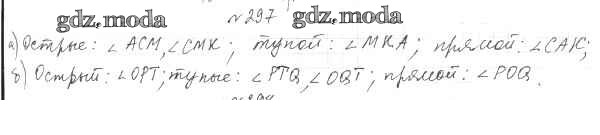 gdz.moda №297 gdz.moda
а) Острые: ∠ACM, ∠CMK; тупой: ∠MKA; прямой: ∠CAK;
б) Острый: ∠OPT; тупые: ∠PTQ, ∠OQT; прямой: ∠POQ.